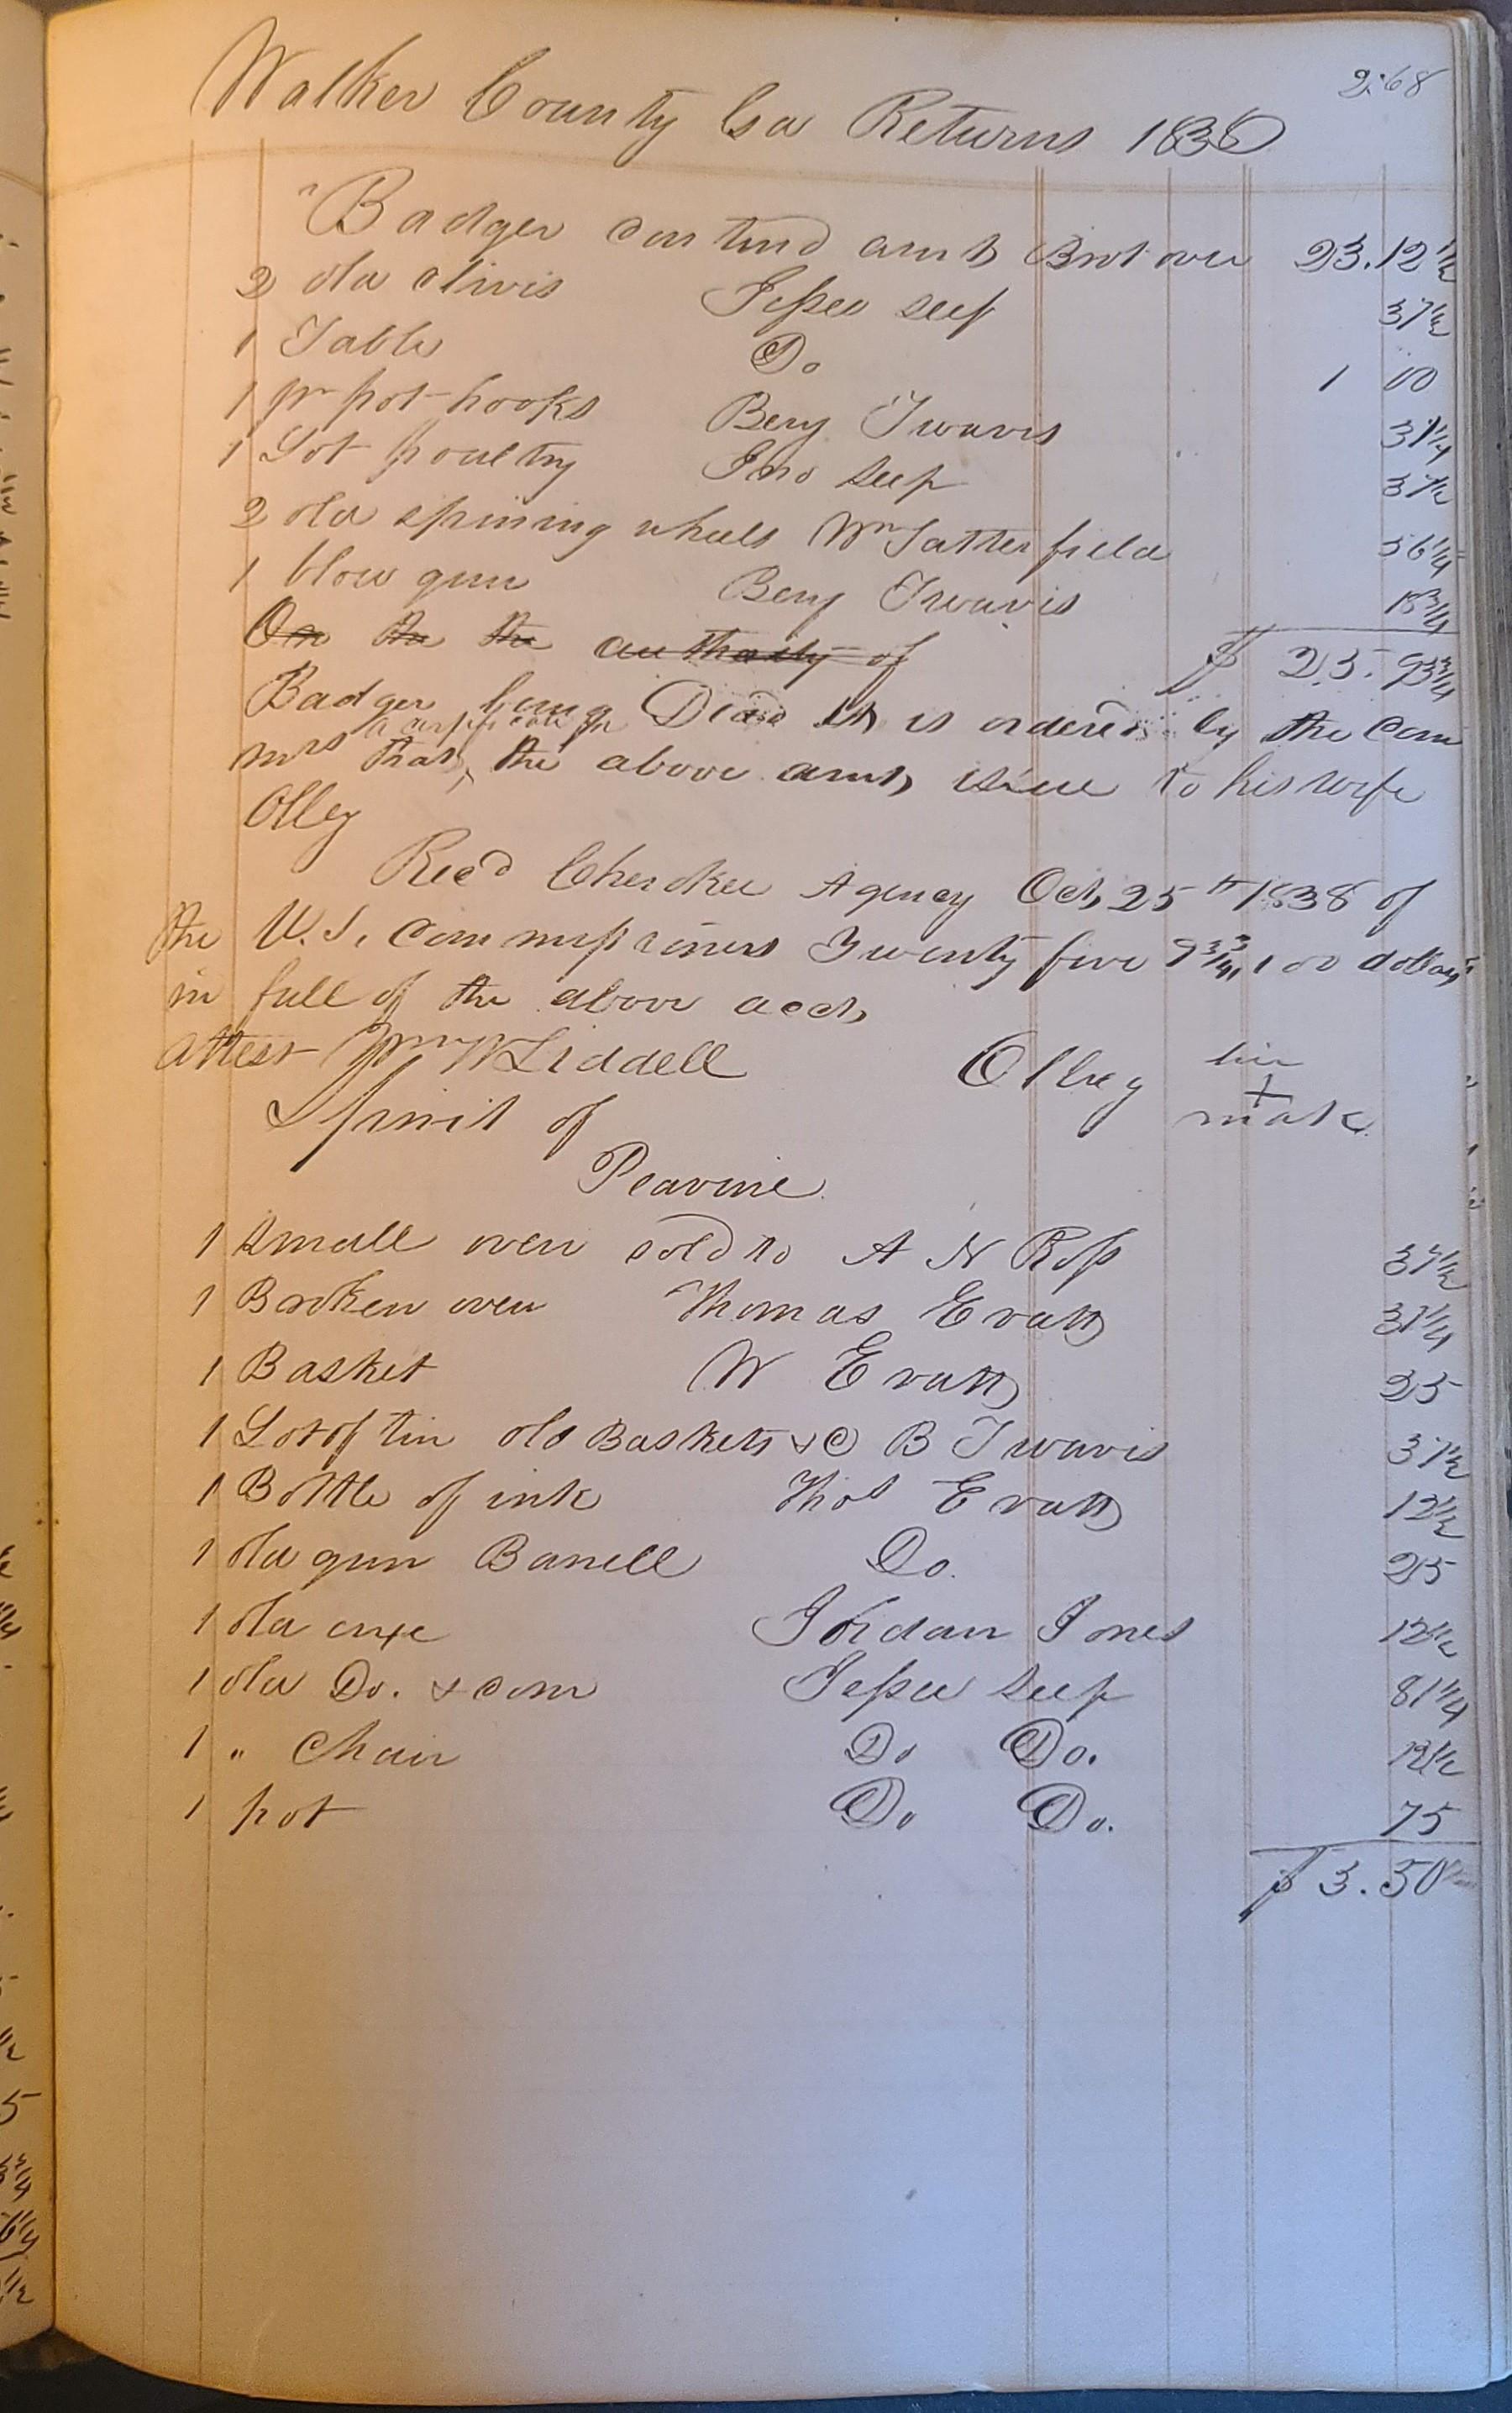 268
Walker County Ga Returns 1838
"Badger contind amt Brot over 23.12 1/2
2 old clivis Jesse seep 37 1/2
1 Table Do 1 00
1 pr pot hooks Benj Twavis 31 1/4
1 Lot poultry Jno seep 37 1/2
2 old spining wheels Wm Satterfield 56 1/4
1 blow gun Benj Twavis 18 3/4
On the the authority of $ 25.93 3/4
Badger being Dead it is ordered by the Com
a certificate for
mrs that the above amt, issue to his wife
Olley
Recd Cherokee Agency Oct, 25th 1838 of
the U.S. Commissioners Twenty five 93 3/4, 100 dollars
in full of the above acct,
Attest Wm W Liddell Olley her
+
mark
Spirit of
Peavine
1 small oven sold to A N Ross 37 1/2
1 Broken oven Thomas Evatt 31 1/4
1 Basket W Evatt 25
1 Lot of tin old Baskets &C B Twavis 37 1/2
1 Bottle of ink Thos Evatt 12 1/2
1 old gun Barrell Do. 25
1 old axe Jordan Jones 12 1/2
1 old Do. & corn Jesse seep 81 1/4
1 " Chair Do Do. 12 1/2
1 pot Do Do. 75
$ 3.50